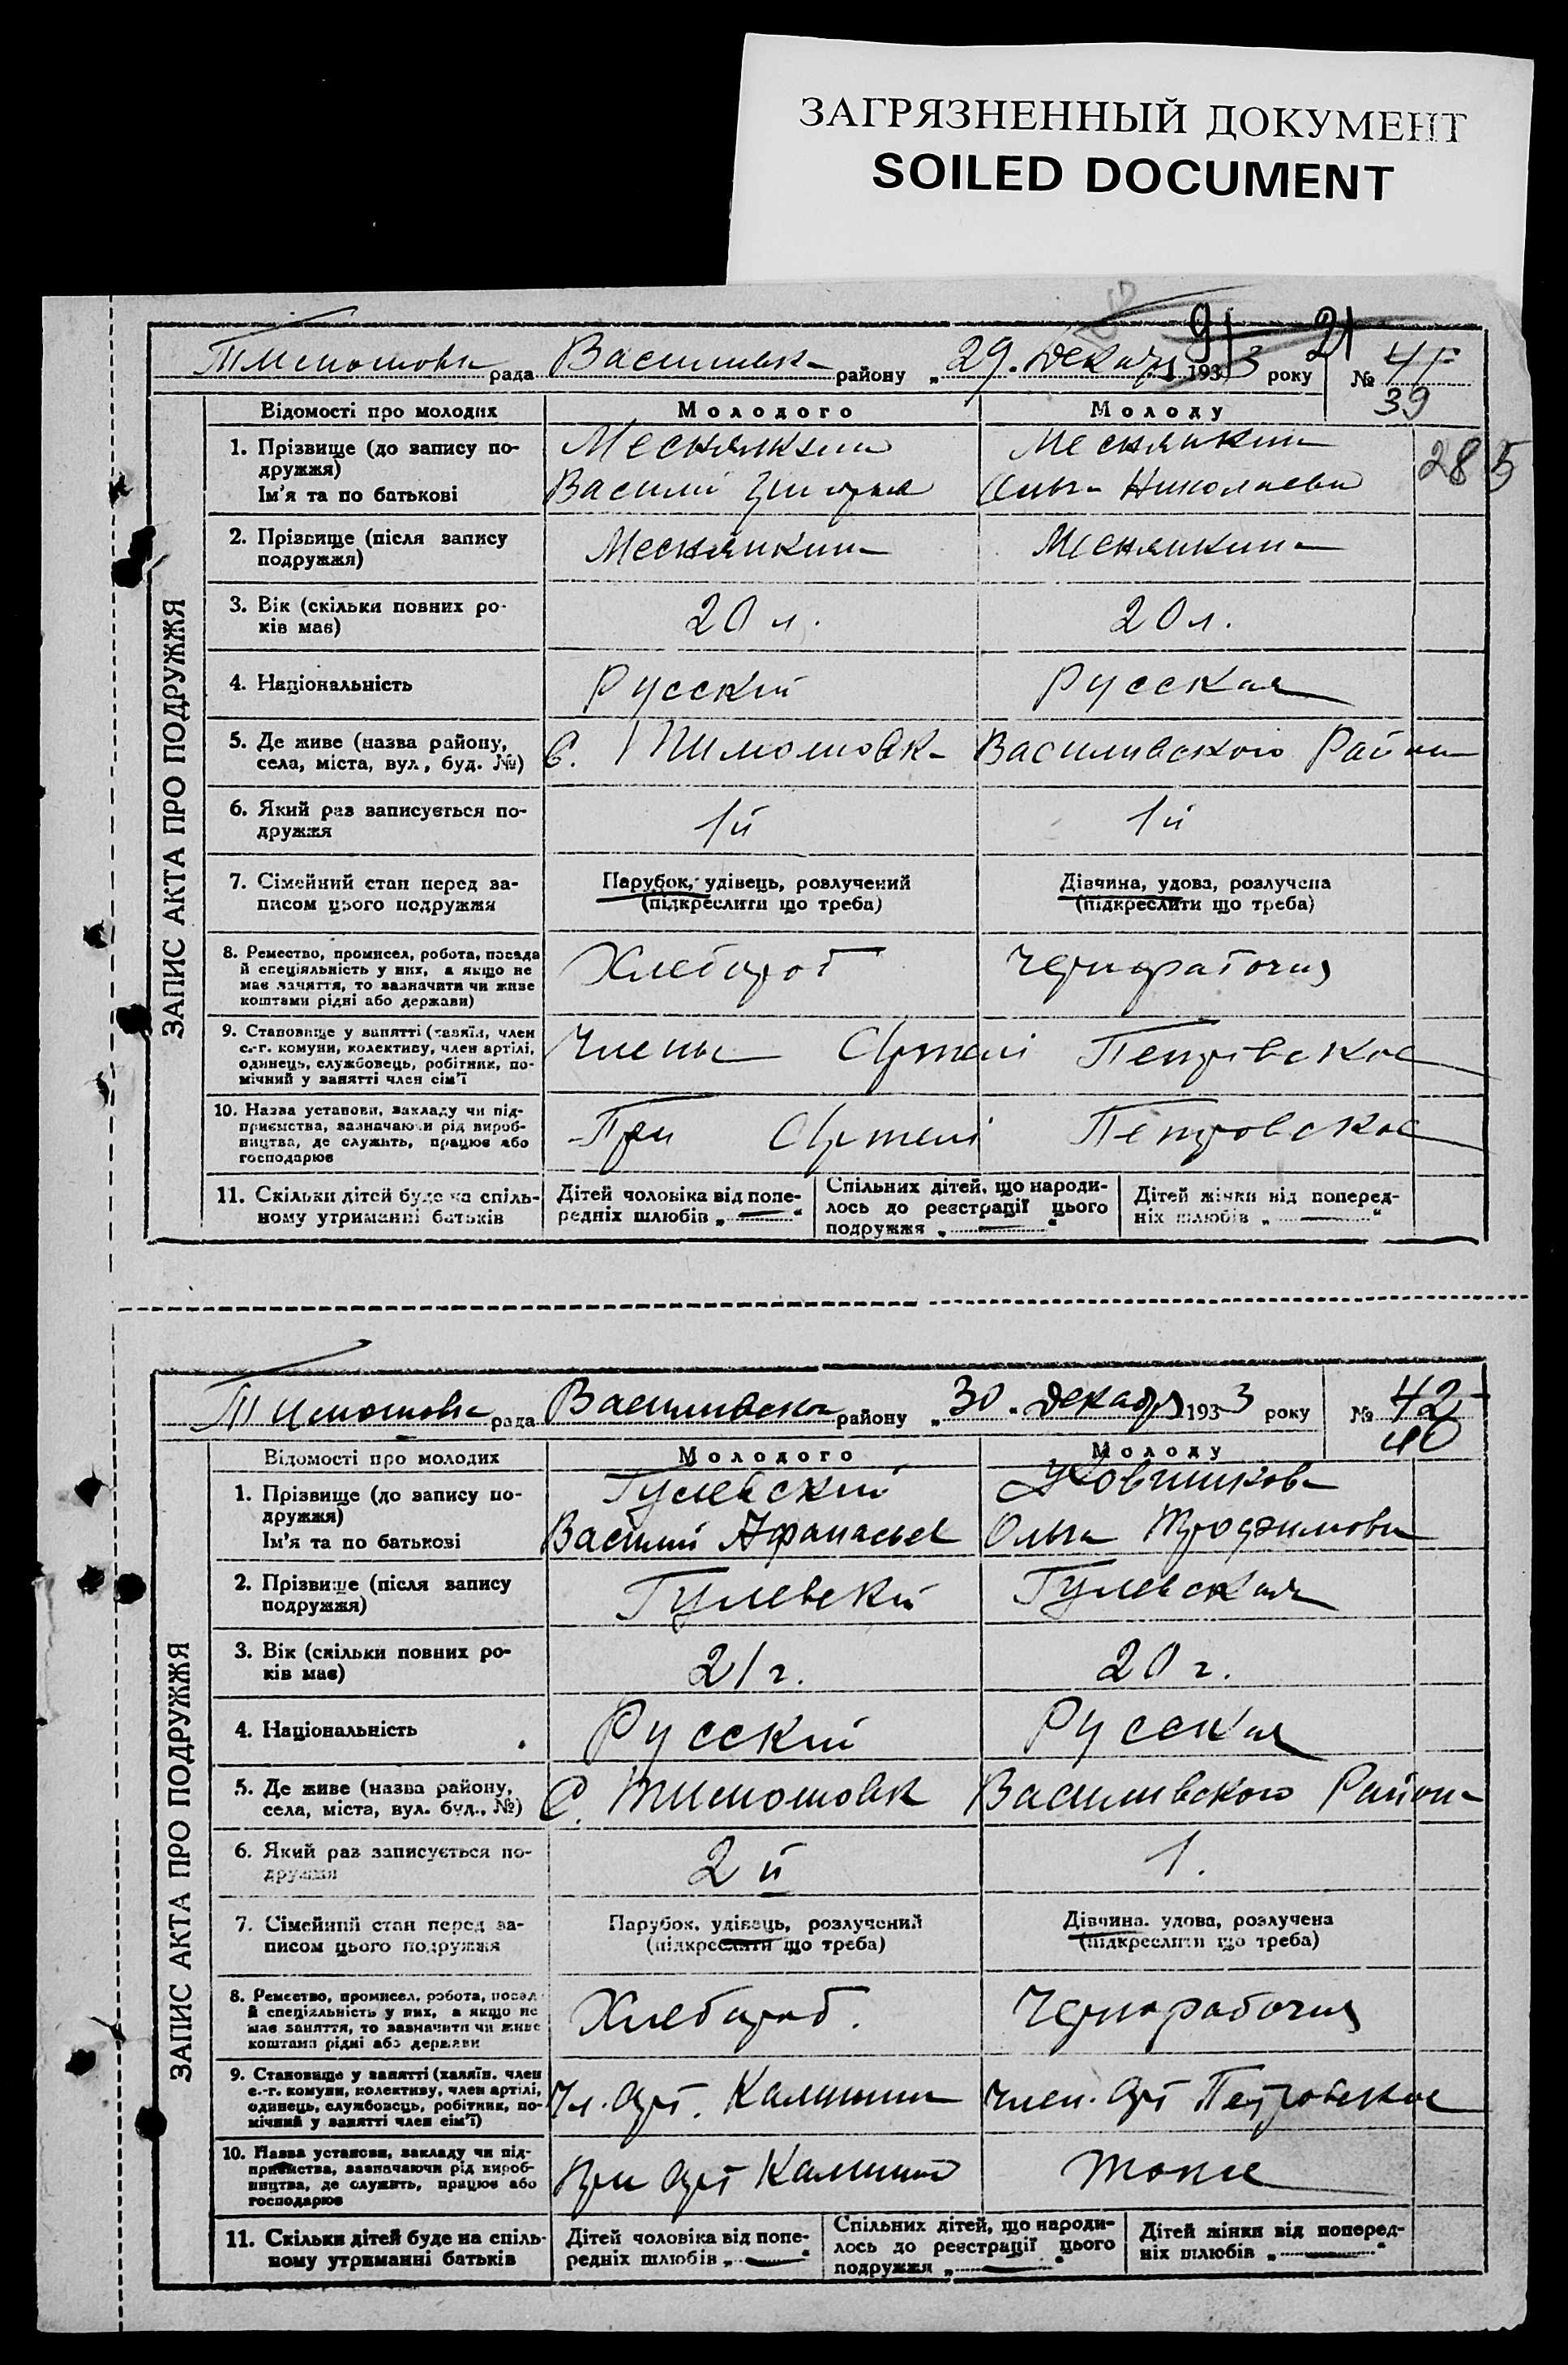 ЗАГРЯЗНЕННЫЙ ДОКУМЕНТ
SOILED DOCUMENT
91 21
Тимошовк рада Василивск району „29. декабр 1933 року № 41
39
285
ЗАПИС АКТА ПРО ПОДРУЖЖЯ
Відомості про молодих Молодого Молоду
1. Прізвище (до запису по-
дружжя)
Ім'я та по батькові
Меснянкин
Василий Григорьев
Меснянкин
Ольга Николаевн
2. Прізвище (після запису
подружжя)
Меснянкин Меснянкин
3. Вік (скільки повних ро-
ків має)
20 л. 20 л.
4. Національність Русский Русская
5. Де живе (назва району,
села, міста, вул., буд. №)
С. Тимошовк Василивского Район
6. Який раз записується по-
дружжя
1й 1й
7. Сімейний стан перед за-
писом цього подружжя
Парубок, удівець, розлучений
(підкреслити що треба)
Дівчина, удова, розлучена
(підкреслити що треба)
8. Ремество, промисел, робота, посада
й спеціяльність у них, а якщо не
має заняття, то зазначити чи живе
коштами рідні або держави)
Хлебороб Чернорабочия
9. Становище у занятті (хазяїн, член
с.-г. комуни, колективу, член артілі,
одинець, службовець, робітник, по-
мічний у занятті член сім'ї
Члены Артели Петровског
10. Назва установи, закладу чи під-
приємства, зазначаючи рід вироб-
ництва, де служить, працює або
господарює
При Артели Петровског
11. Скільки дітей буде на спіль-
ному утриманні батьків
Дітей чоловіка від попе-
редніх шлюбів „ — “
Спільних дітей, що народи-
лось до реєстрації цього
подружжя „ — “
Дітей жінки від поперед-
ніх шлюбів „ — “
Тимошовк рада Василивск району „30. декабр 1933 року № 42
40
ЗАПИС АКТА ПРО ПОДРУЖЖЯ
Відомості про молодих Молодого Молоду
1. Прізвище (до запису по-
дружжя)
Ім'я та по батькові
Гулевский
Василий Афанасьев
Ольга Трофимовн
2. Прізвище (після запису
подружжя)
Гулевский Гулевская
3. Вік (скільки повних ро-
ків має)
21 г. 20 г.
4. Національність Русский Русская
5. Де живе (назва району,
села, міста, вул. буд., №)
С. Тимошовк Василивского Район
6. Який раз записується по-
дружжя
2й 1.
7. Сімейний стан перед за-
писом цього подружжя
Парубок, удівець, розлучений
(підкреслити що треба)
Дівчина, удова, розлучена
(підкреслити що треба)
8. Ремество, промисел, робота, посада
й спеціяльність у них, а якщо не
має заняття, то зазначити чи живе
коштами рідні або держави
Хлебороб. Чернорабочия
9. Становище у занятті (хазяїн, член
с.-г. комуни, колективу, член артілі,
одинець, службовець, робітник, по-
мічний у занятті член сім'ї)
Чл. Арт. Калинин Член. Арт Петровског
10. Назва установи, закладу чи під-
приємства, зазначаючи рід вироб-
ництва, де служить, працює або
господарює
При Арт Калинин Тоже
11. Скільки дітей буде на спіль-
ному утриманні батьків
Дітей чоловіка від попе-
редніх шлюбів „ — “
Спільних дітей, що народи-
лось до реєстрації цього
подружжя „ — “
Дітей жінки від поперед-
ніх шлюбів „ — “